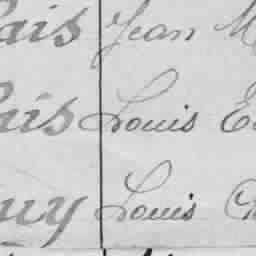 ais Jean M
ais Louis E
uy Louis